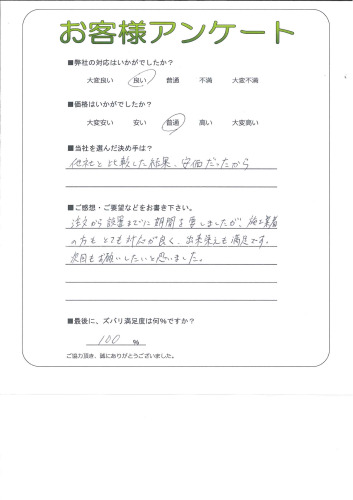 お客様アンケート
■弊社の対応はいかがでしたか？
大変良い 良い 普通 不満 大変不満
■価格はいかがでしたか？
大変安い 安い 普通 高い 大変高い
■当社を選んだ決め手は？
他社と比較した結果、安価だったから
■ご感想・ご要望などをお書き下さい。
注文から設置までに期間を要しましたが、施工業者
の方もとても対応が良く、出来栄えも満足です。
次回もお願いしたいと思いました。
■最後に、ズバリ満足度は何％ですか？
100 ％
ご協力頂き、誠にありがとうございました。